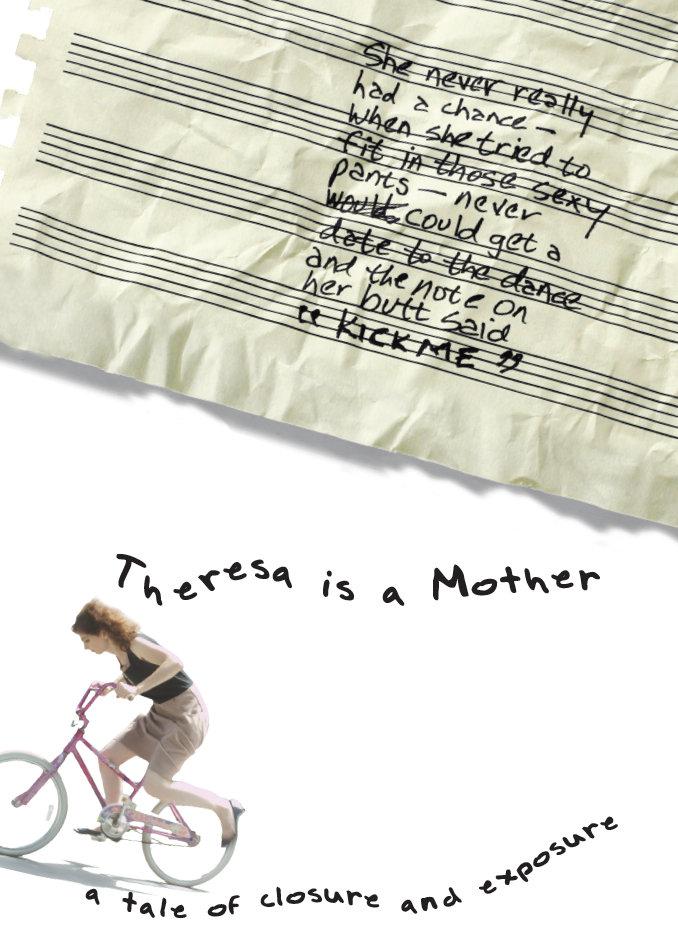 She never really
had a chance –
when she tried to
fit in those sexy
pants – never
could get a
date to the dance
and the note on
her butt said
"KICK ME"
Theresa is a Mother
a tale of closure and exposure